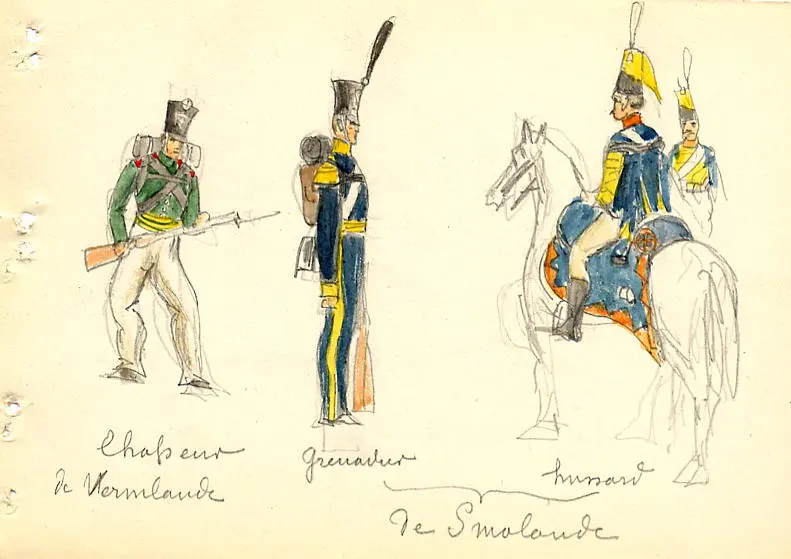 Chaſseur
de Wermlande
Grenadier
hussard
de Smolande